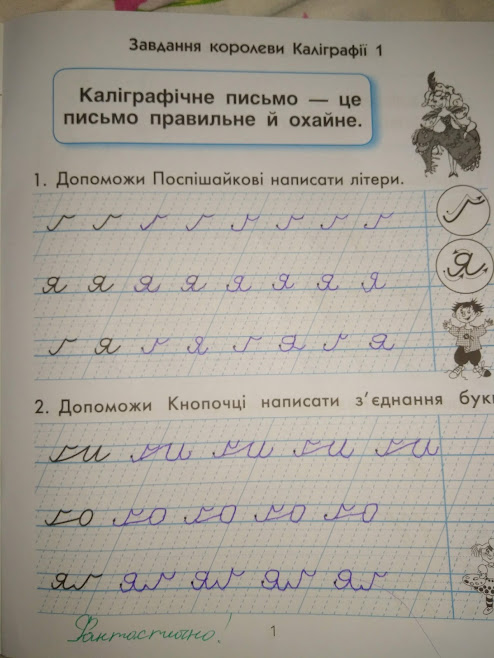 Завдання королеви Каліграфії 1
Каліграфічне письмо — це
письмо правильне й охайне.
1. Допоможи Поспішайкові написати літери.
г г г г г г г г
г
я я я я я я я я
я
г я г я г я г я
2. Допоможи Кнопочці написати з'єднання бук
ги ги ги ги ги
го го го го го
яг яг яг яг яг
Фантастично!
1